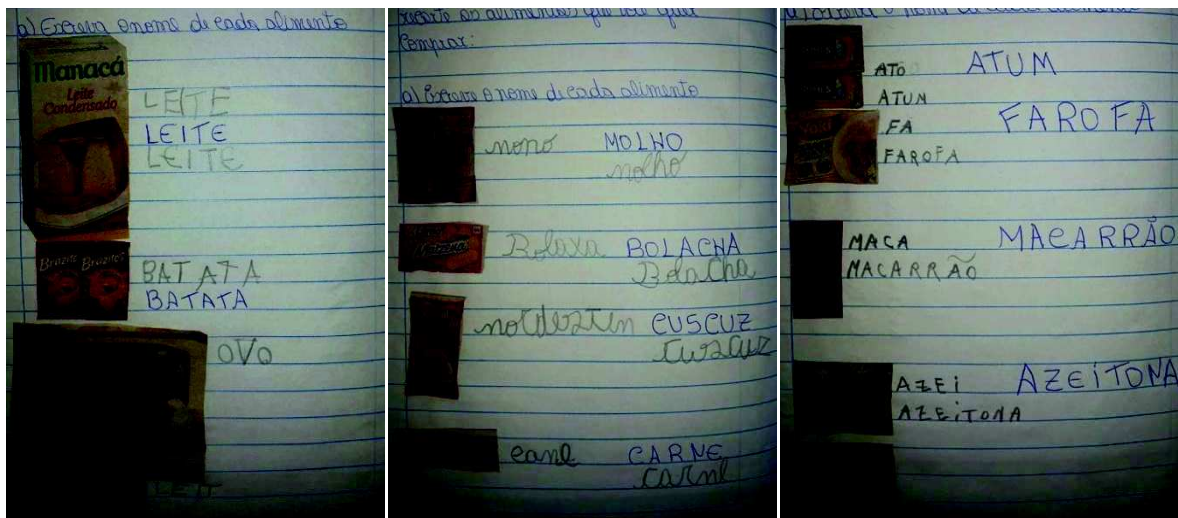 a) Escreva o nome de cada alimento
Manacá
Leite
Condensado
LEITE
LEITE
LEITE
BATATA
BATATA
OVO
LEIT
recorte os alimentos que você quer
comprar:
a) Escreva o nome de cada alimento
nono MOLHO
nolho
Bolaxa BOLACHA
Bolacha
CUSCUZ
Cuscuz
cane CARNE
carne
ATO ATUM
ATUM
FA FAROFA
FAROFA
MACA MACARRÃO
MACARRÃO
AZEI AZEITONA
AZEITONA